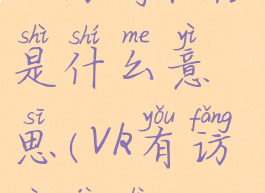 shì shí me yì
是什么意
sī yǒu fǎng
思(VK有访